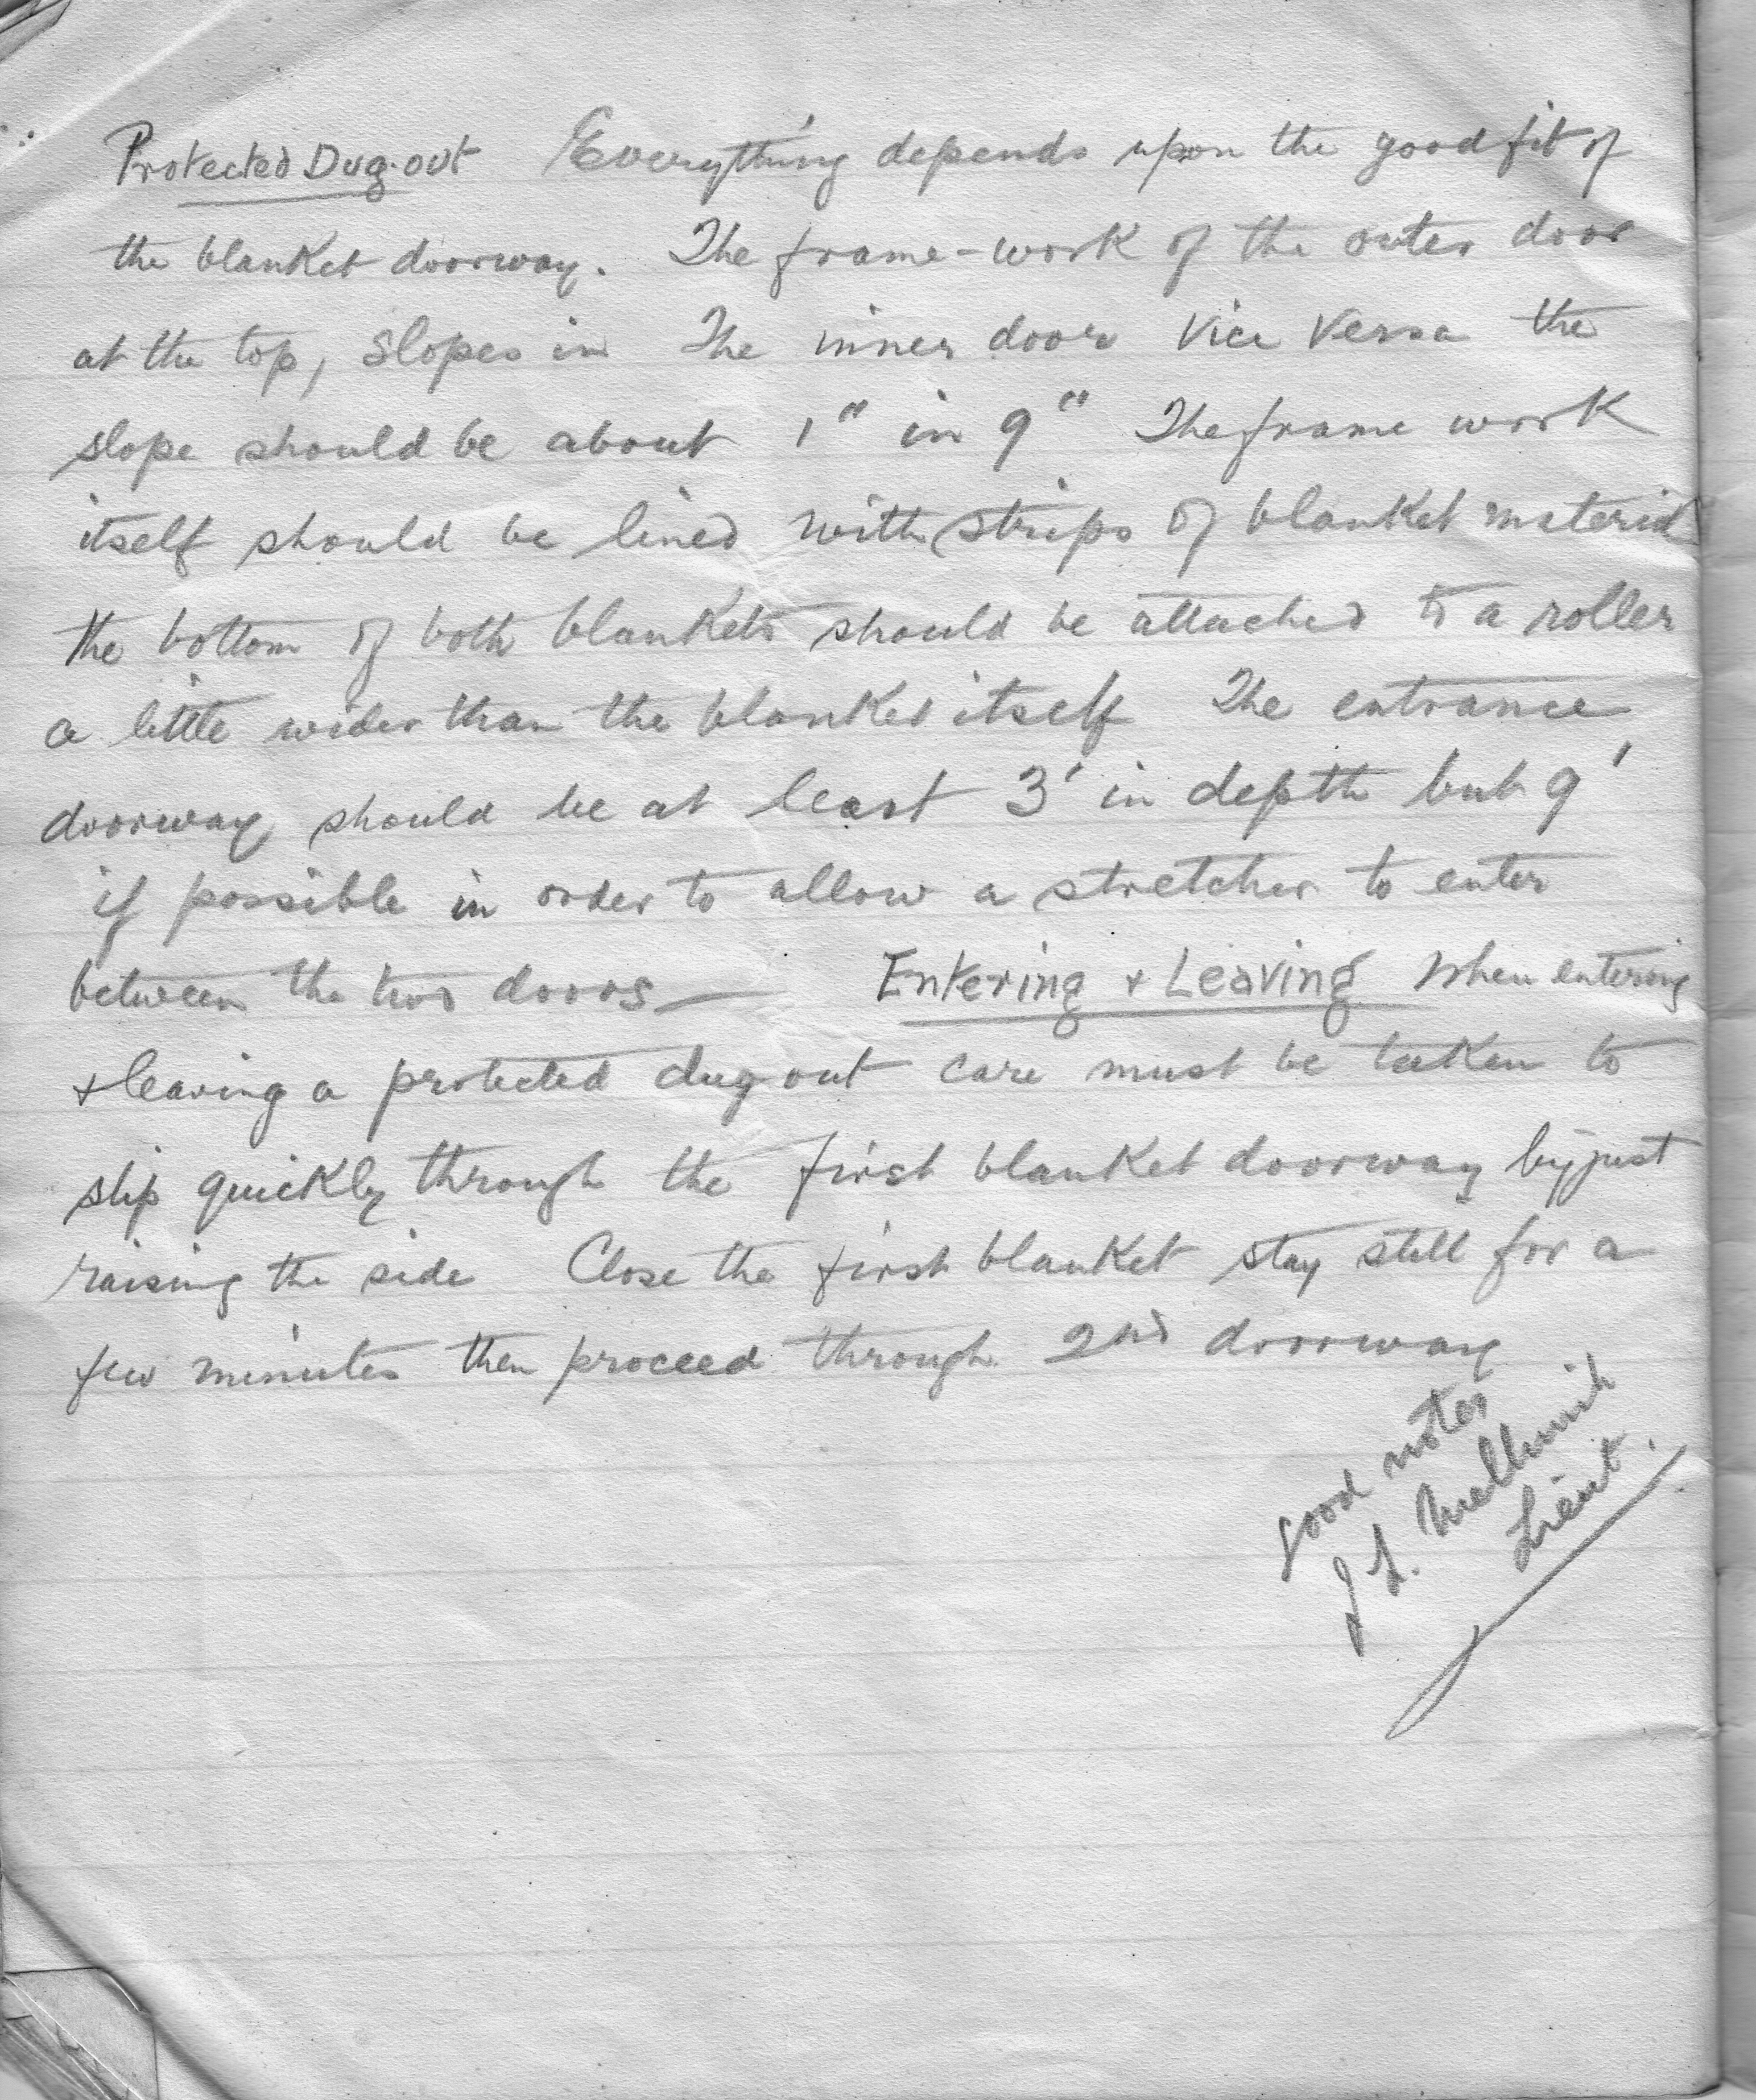 Protected Dug-out Everything depends upon the good fit of
the blanket doorway. The frame-work of the outer door
at the top, slopes in The inner door vice versa the
slope should be about 1" in 9" The frame work
itself should be lined with strips of blanket material
the bottom of both blankets should be attached to a roller
a little wider than the blanket itself The entrance
doorway should be at least 3' in depth but 9'
if possible in order to allow a stretcher to enter
between the two doors —
Entering & Leaving When entering
& leaving a protected dug out care must be taken to
slip quickly through the first blanket doorway by just
raising the side Close the first blanket stay still for a
few minutes then proceed through 2nd doorway
good notes
J L.
Lieut.